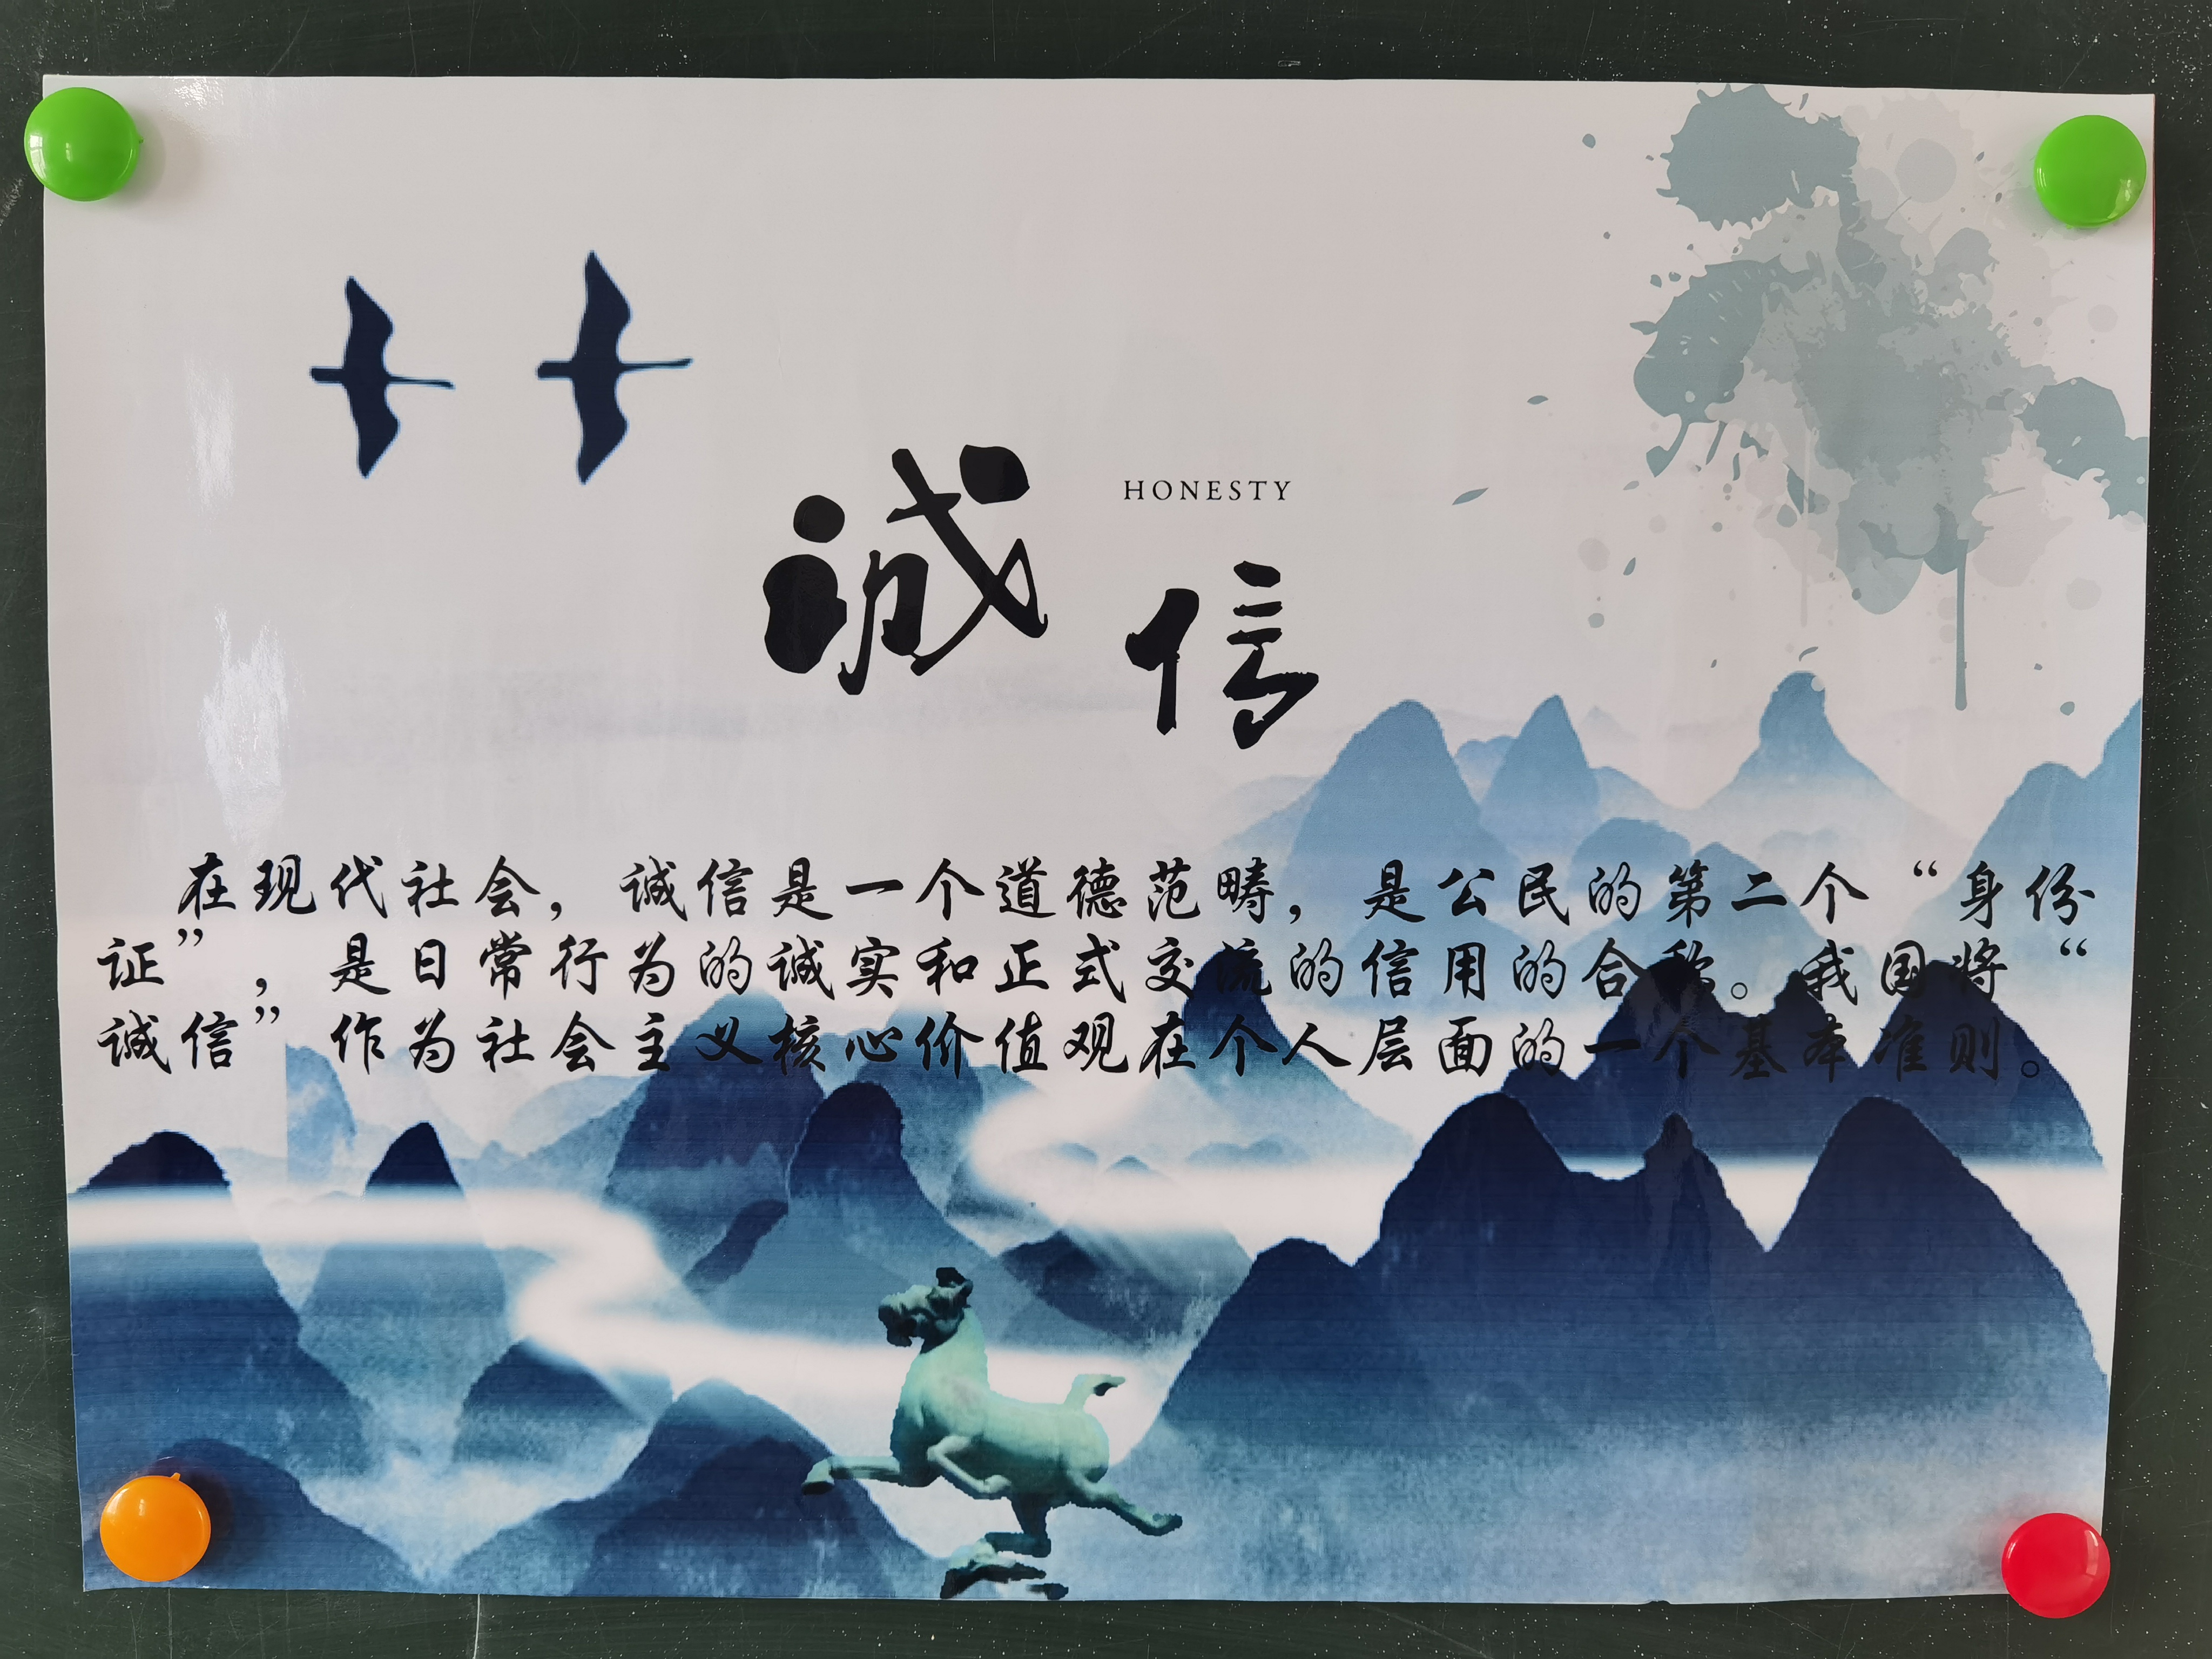 诚信
HONESTY
在现代社会，诚信是一个道德范畴，是公民的第二个“身份
证”，是日常行为的诚实和正式交流的信用的合称。我国将“
诚信”作为社会主义核心价值观在个人层面的一个基本准则。